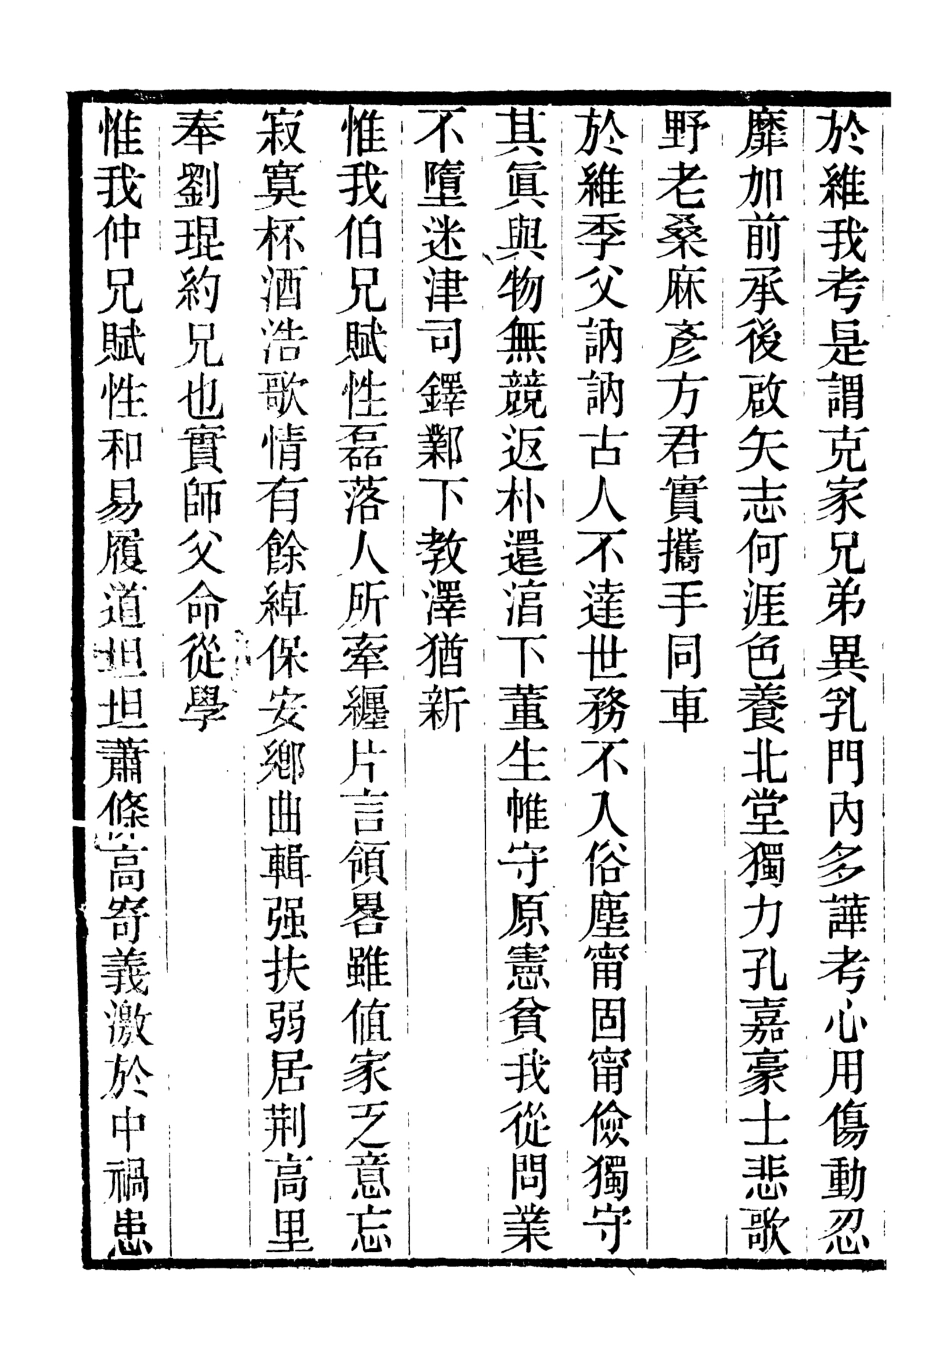 於維我考是謂克家兄弟異乳門內多譁考心用傷動忍
靡加前承後啟矢志何涯色養北堂獨力孔嘉豪士悲歌
野老桑麻彥方君實攜手同車
於維季父訥訥古人不達世務不入俗塵甯固甯儉獨守
其眞與物無競返朴還淯下董生帷守原憲貧我從問業
不墮迷津司鐸鄴下教澤猶新
惟我伯兄賦性磊落人所牽纏片言領畧雖値家乏意忘
寂寞杯酒浩歌情有餘綽保安鄉曲輯强扶弱居荆高里
奉劉琨約兄也實師父命從學
惟我仲兄賦性和易履道坦坦蕭條高寄義激於中禍患